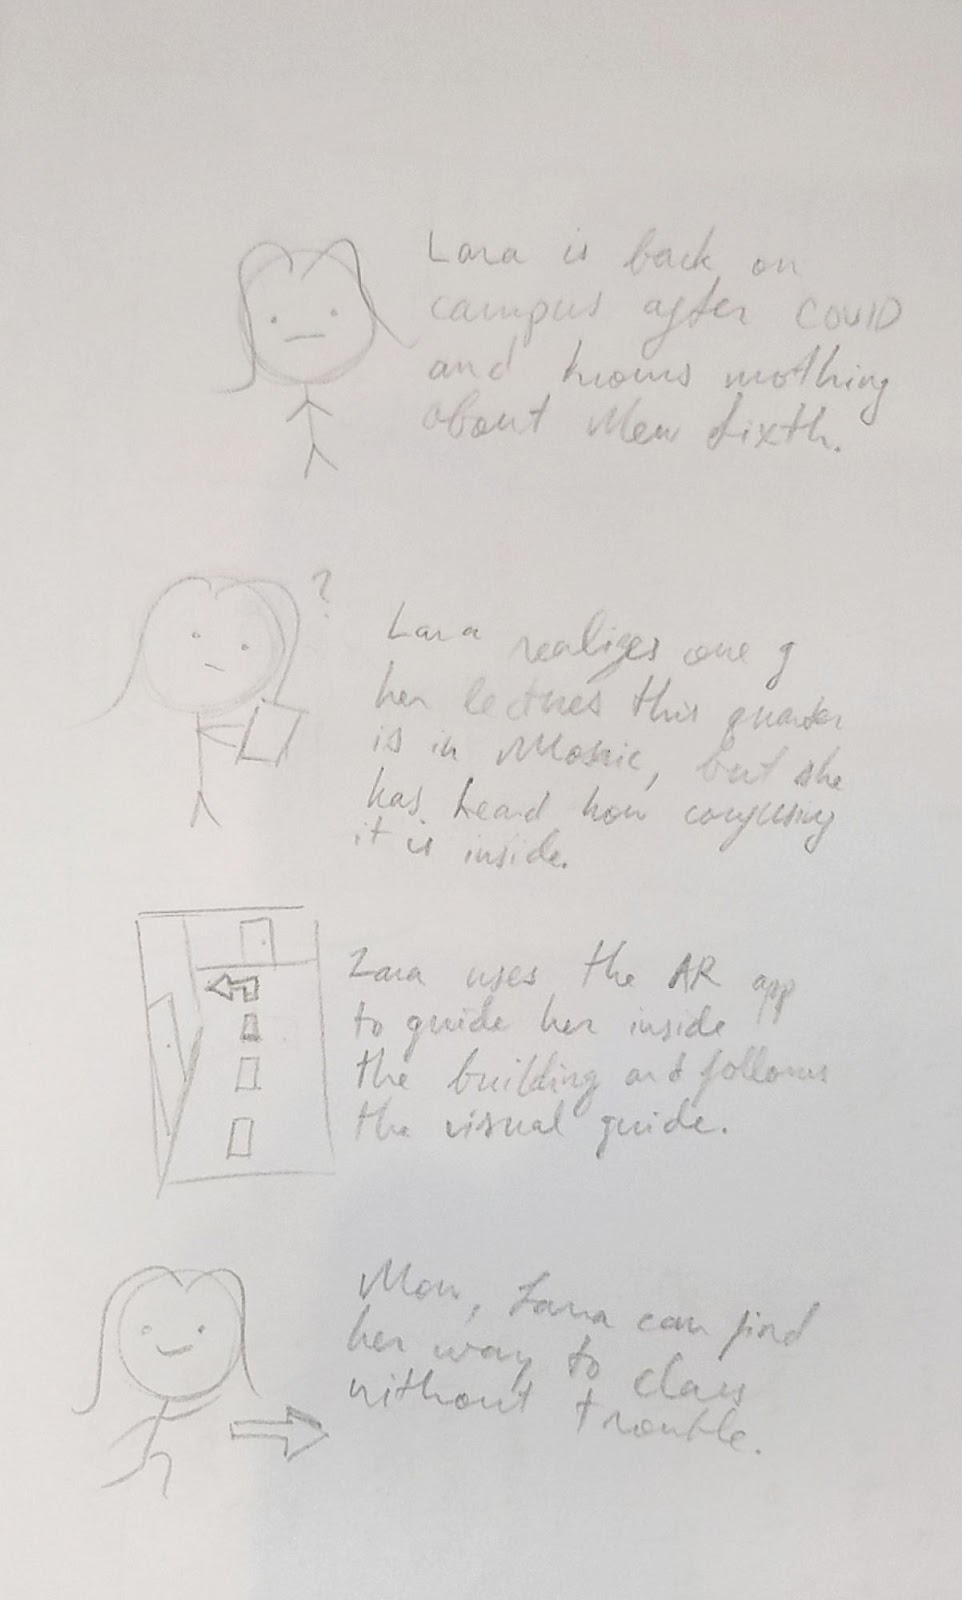 Lara is back on
campus after COVID
and knows nothing
about New Sixth.
?
Lara realizes one of
her lectures this quarter
is in Mosaic, but she
has heard how confusing
it is inside.
Lara uses the AR app
to guide her inside
the building and follows
the visual guide.
Now, Lara can find
her way to class
without trouble.